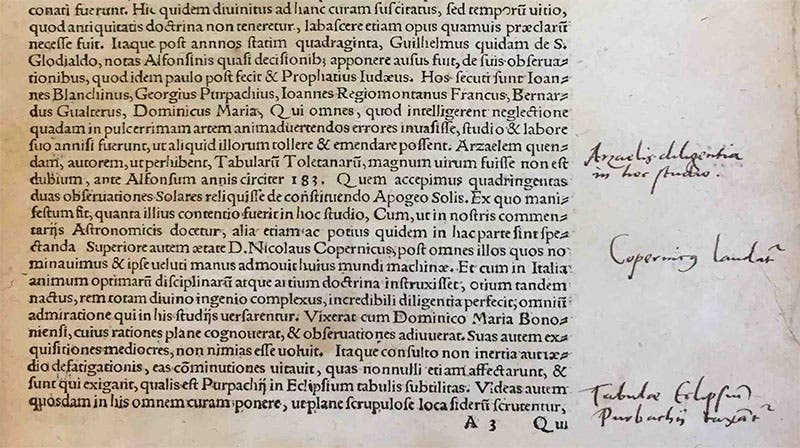 conati fuerunt. Hic quidem diuinitus ad hanc curam suscitatus, sed temporũ uitio,
quod antiquitatis doctrina non teneretur, labascere etiam opus quamuis præclarũ
necesse fuit. Itaque post annnos statim quadraginta, Guilhelmus quidam de S.
Glodialdo, notas Alfonsinis quasi decisionib; apponere ausus fuit, de suis obserua=
tionibus, quod idem paulo post fecit & Prophatius Iudæus. Hos secuti sunt Ioan=
nes Blanchinus, Georgius Purpachius, Ioannes Regiomontanus Francus, Bernar=
dus Gualterus, Dominicus Maria, Qui omnes, quod intelligerent neglectione
quadam in pulcerrimam artem animaduertendos errores inuasisse, studio & labore
suo annisi fuerunt, ut aliquid illorum tollere & emendare possent. Arzaelem quen=
dam, autorem, ut perhibent, Tabularũ Toletanarũ, magnum uirum fuisse non est
dubium, ante Alfonsum annis circiter 183. Quem accepimus quadringentas
duas obseruationes Solares reliquisse de constituendo Apogeo Solis. Ex quo mani=
festum fit, quanta illius contentio fuerit in hoc studio, Cum, ut in nostris commen=
tarijs Astronomicis docetur, alia etiam ac potius quidem in hac parte sint spe=
ctanda Superiore autem ætate D. Nicolaus Copernicus, post omnes illos quos no=
minauimus & ipse ueluti manus admouit huius mundi machinæ. Et cum in Italia
animum optimarũ disciplinarũ atque artium doctrina instruxisset, otium tandem
nactus, rem totam diuino ingenio complexus, incredibili diligentia perfecit; omniũ
admiratione qui in his studijs uersarentur. Vixerat cum Dominico Maria Bono=
niensi, cuius rationes plane cognouerat, & obseruationes adiuuerat. Suas autem ex=
quisitiones mediocres, non nimias esse uoluit. Itaque consulto non inertia aut tæ=
dio defatigationis, eas cõminutiones uitauit, quas nonnulli etiam affectarunt, &
sunt qui exigant, qualis est Purpachij in Eclipsium tabulis subtilitas. Videas autem
quosdam in his omnem curam ponere, ut plane scrupulose loca siderũ scrutentur,
A 3 Qui
Arzaelis diligentia
in hoc studio.
Copernicus laudat&#x27;
Tabulæ Eclipsium
Purbachij